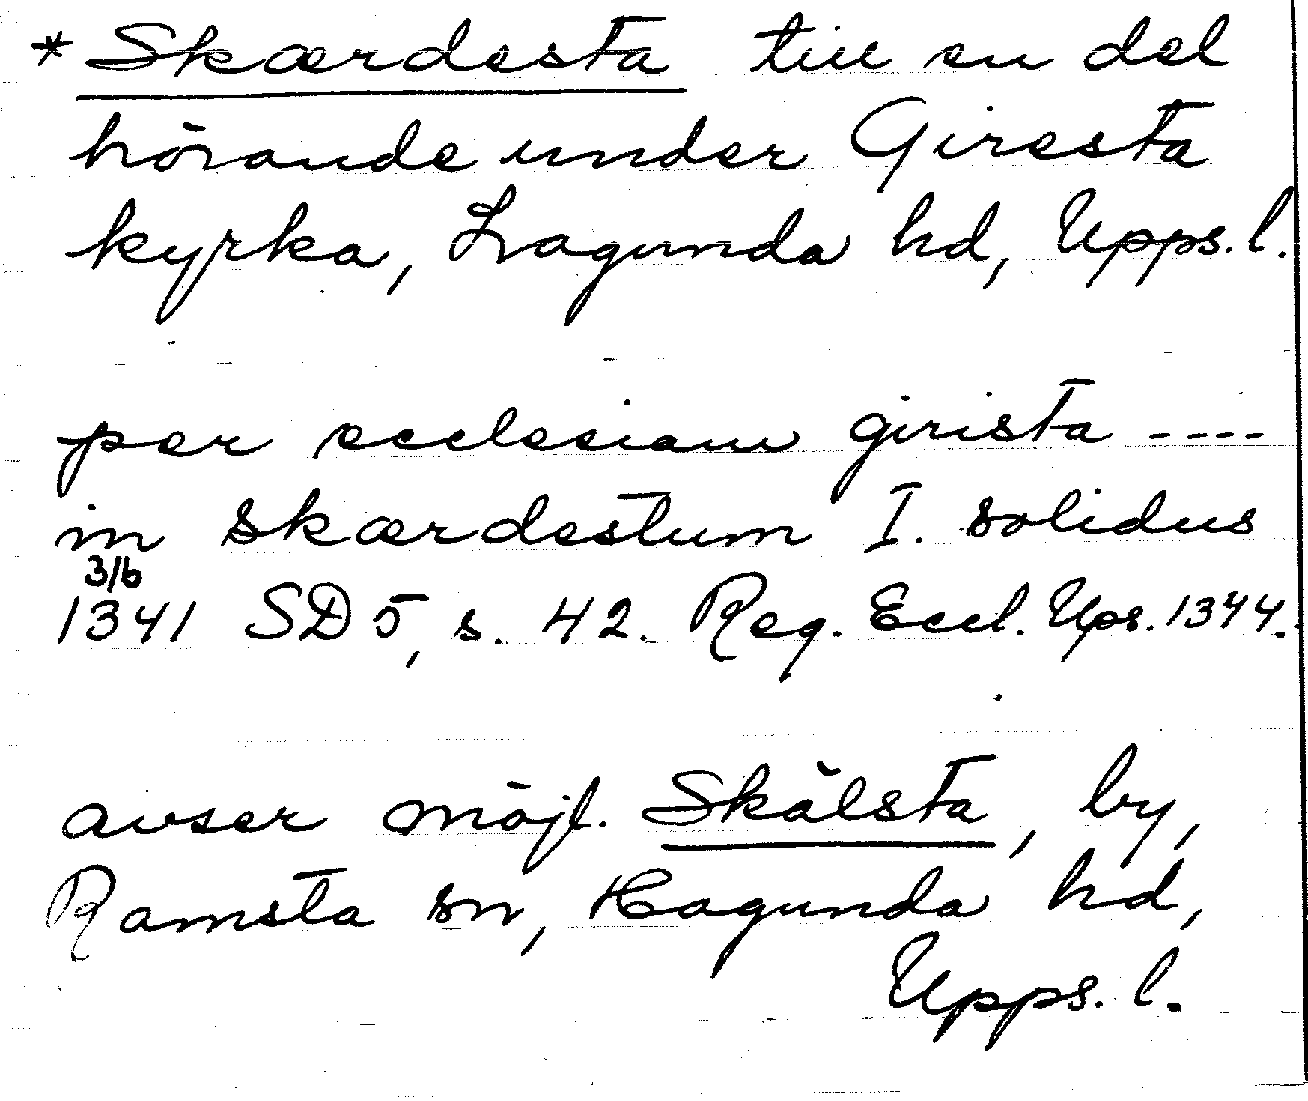 * Skærdesta till en del
hörande under Giresta
kyrka, Lagunda hd, Upps. l.
per ecclesiam girista ----
in skærdestum I. solidus
3/6
1341 SD 5, s. 42. Reg. Eccl. Ups. 1344.
avser möjl. Skälsta, by,
Ramsta sn, Hagunda hd,
Upps. l.